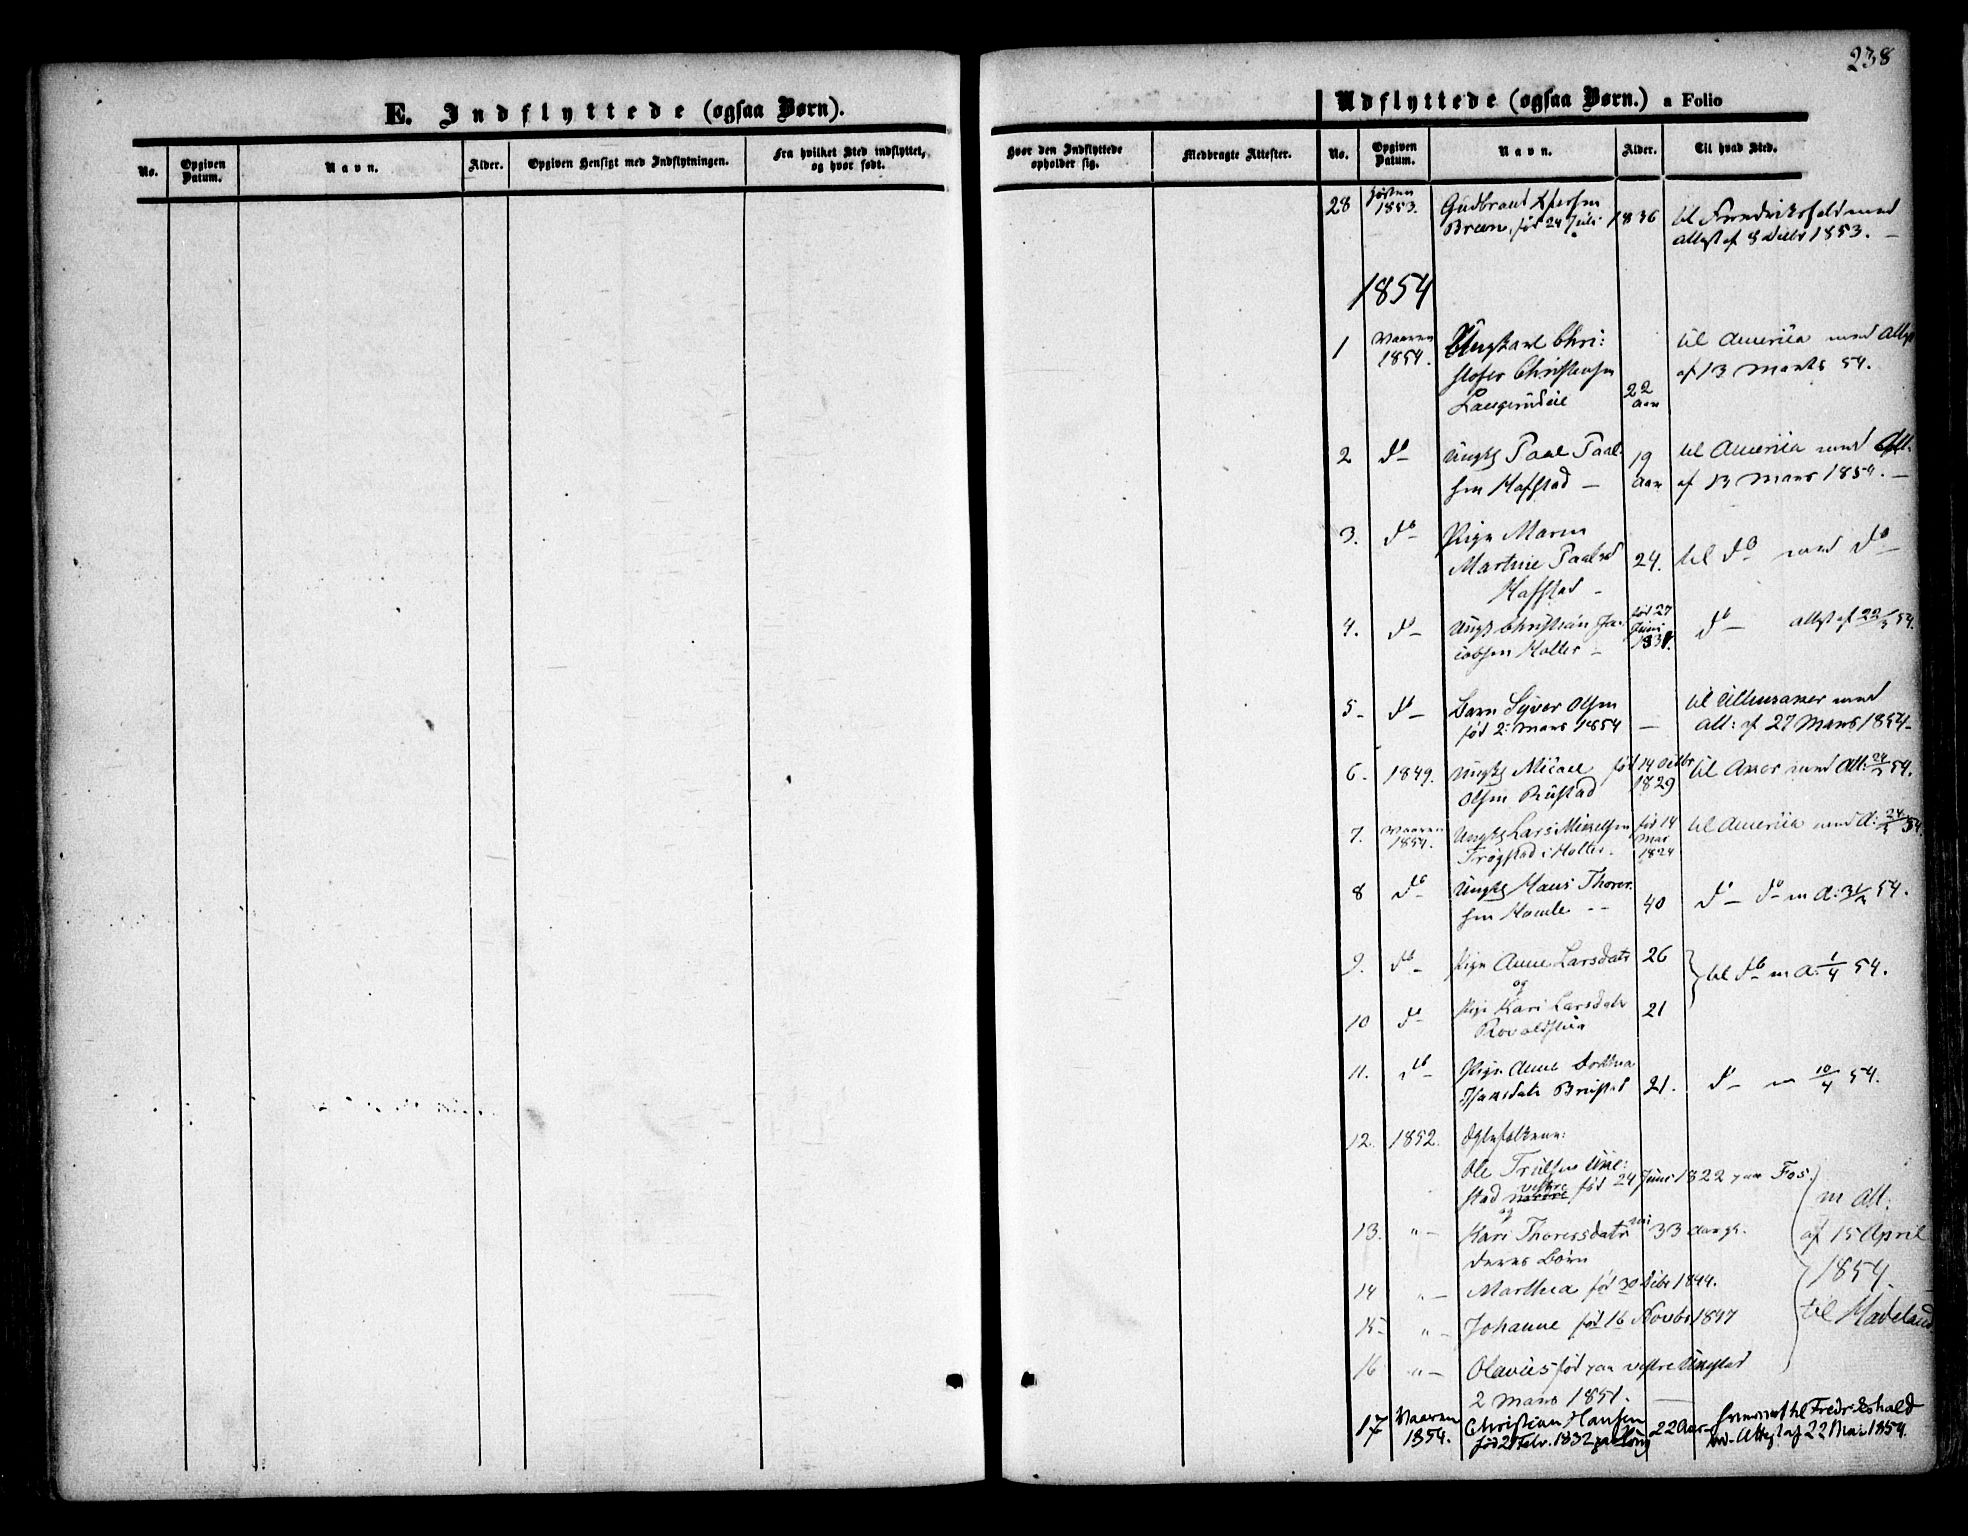 238
E. Indflyttede (ogsaa Børn).
Udflyttede (ogsaa Børn.) a Folio
No.
Opgiven Datum.
Navn.
Alder.
Opgiven Hensigt med Indflytningen.
Fra hvilket Sted indflyttet, og hvor født.
Hvor den Indflyttede opholder sig.
Medbragte Attester.
No.
Opgiven Datum.
Navn.
Alder.
Til hvad Sted.
28 Høsten 1853. Gudbrand
født 24 Juli 1836 til Fredrikshald med
Attest af 8 Decbr 1853. —
1854
1 Vaaren 1854. Ungkarl Chri:
stofer Christensen
22 Aar til America med Attest
af 13 Marts 54.
2 do — Ungk Paal Paal
sen Hafstad — 19 Aar til America med Att.
af 13 Mars 1854. —
3. do — Pige Maren
Martine Paalsd
Hafstad — 24. til do med do —
4. do — Ungk Christian Ja
cobsen Holter — født 27 Juni do — Attest af 22/3 54.
5 — do — Barn Syver Olsen
født 2: Mars 1854 — til Ullensaker med
Att: af 27 Mars 1854 —
6. 1849. Ungk Micael født 14 Octbr
Olsen Rustad 1829 til Asker med Att: 54.
7. Vaaren 1854. Ungk Lars Mickelsen født 14
Trøgstad i Holter. 1824 til America med A: 54.
8 do — Ungk Hans Thorer
sen — 40 do — do — m A: 54.
9. do — Pige Anne Larsdatr 26
og
til do m A: 1/4 54.
10 do — Pige Kari Larsdatr 21
11. do — Pige Anne Dorthea
Hansdatr Brustad 21. do — m 10/4 54.
12. 1852. Ægtefolkene:
Ole Trulsen Uke:
stad vestre født 24 Juni 1822 paa Fos.
og
m Att.
13. " — Kari Thoresdatr 33 Aar
deres Børn
af 15 April
14 " — Marthea født 30 Decbr 1844.
1854
15 " — Johanne født 16 Novbr 1847
til Hadeland
16 " — Olavus født paa vestre Ukestad
2 Mars 1851. —
17 Vaaren 1854. Christian Hansen
født 2 Febr. 1832 22 Aar — til Fredrikshald
Attest af 22 Mai 1854.